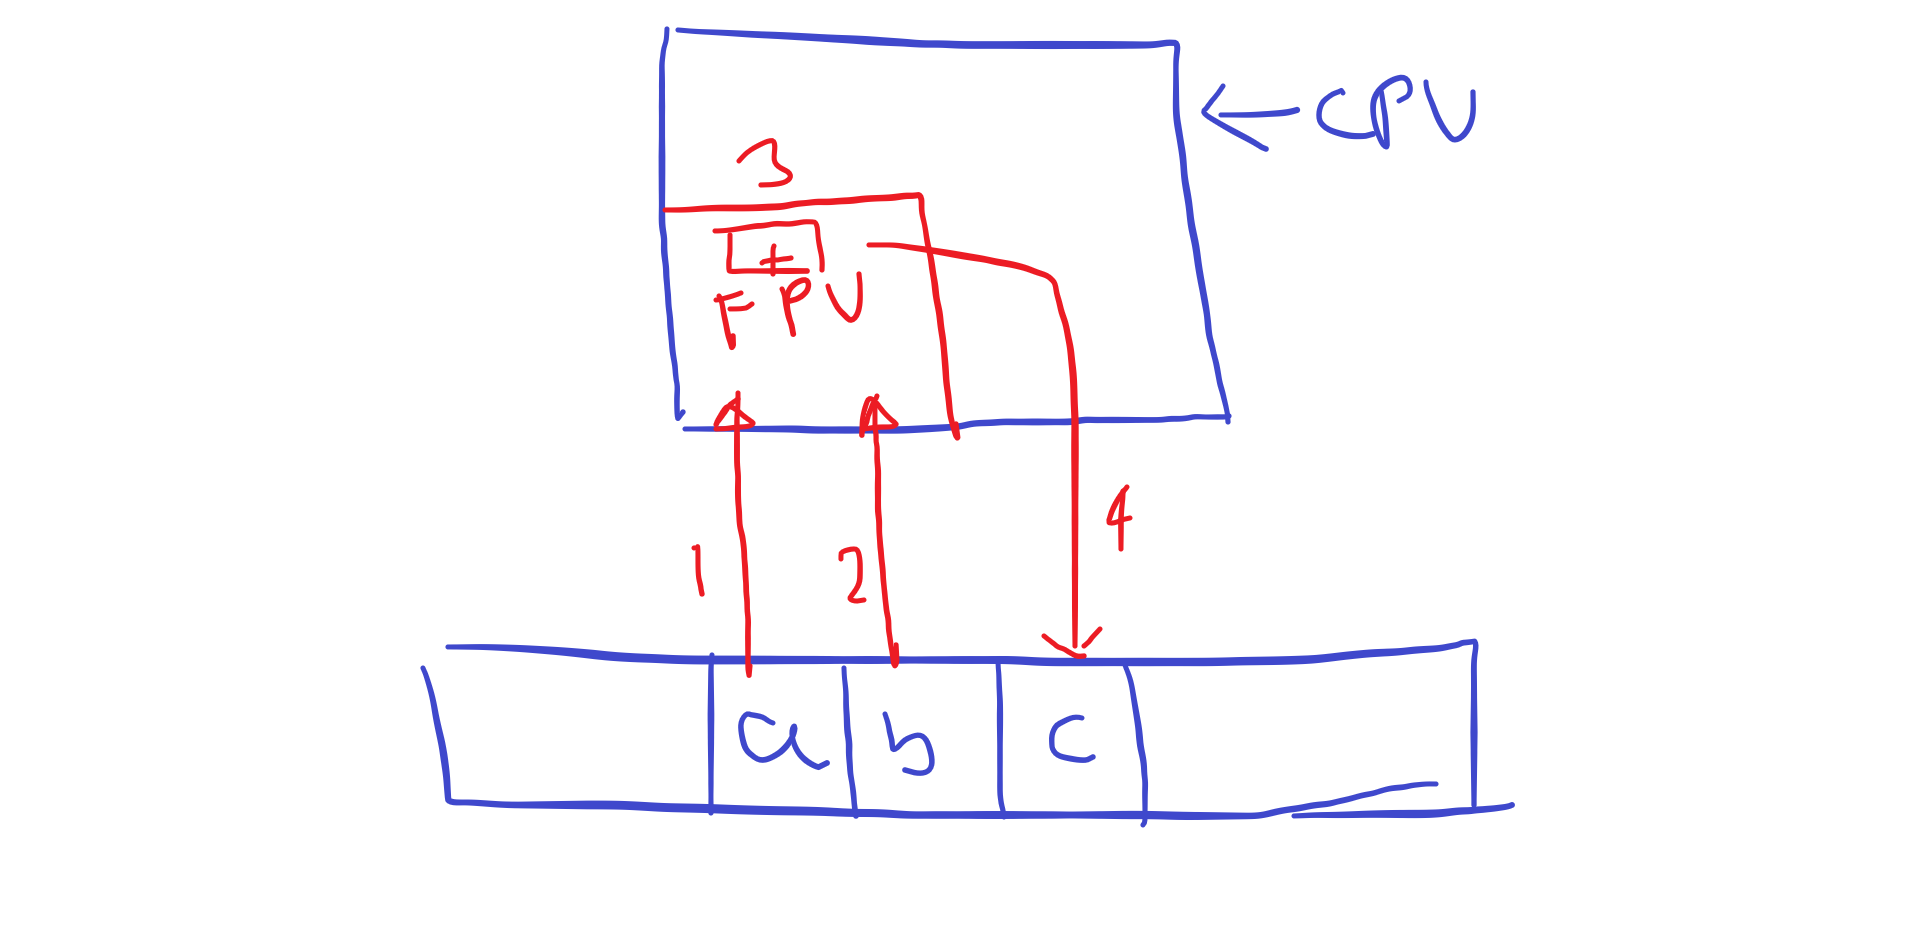 CPU
3
+
FPU
4
1 2
a b c